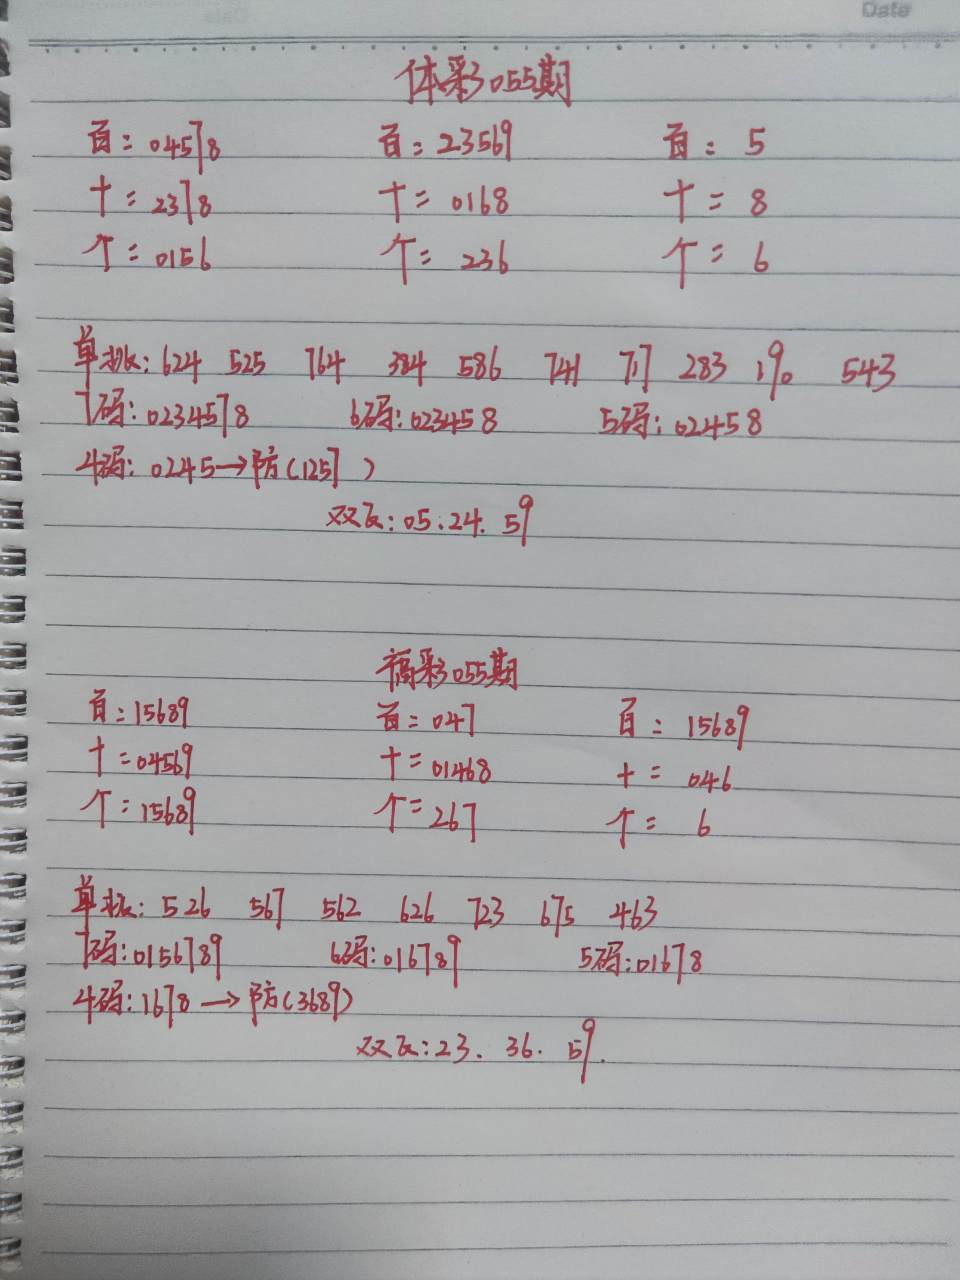 Date
体彩055期
百:04578 百:23569 百:5
十=2378 十=0168 十=8
个=0156 个=236 个=6
单挑:624 525 764 384 586 741 717 283 190 543
7码:0234578 6码:023458 5码:02458
4码:0245→防(1257)
双飞:05.24.59
福彩055期
百:15689 百=047 百=15689
十=04569 十=01468 十=046
个=15689 个=267 个=6
单挑:526 567 562 626 723 675 463
7码:0156789 6码:016789 5码:01678
4码:1678→防(3689)
双飞:23.36.59.